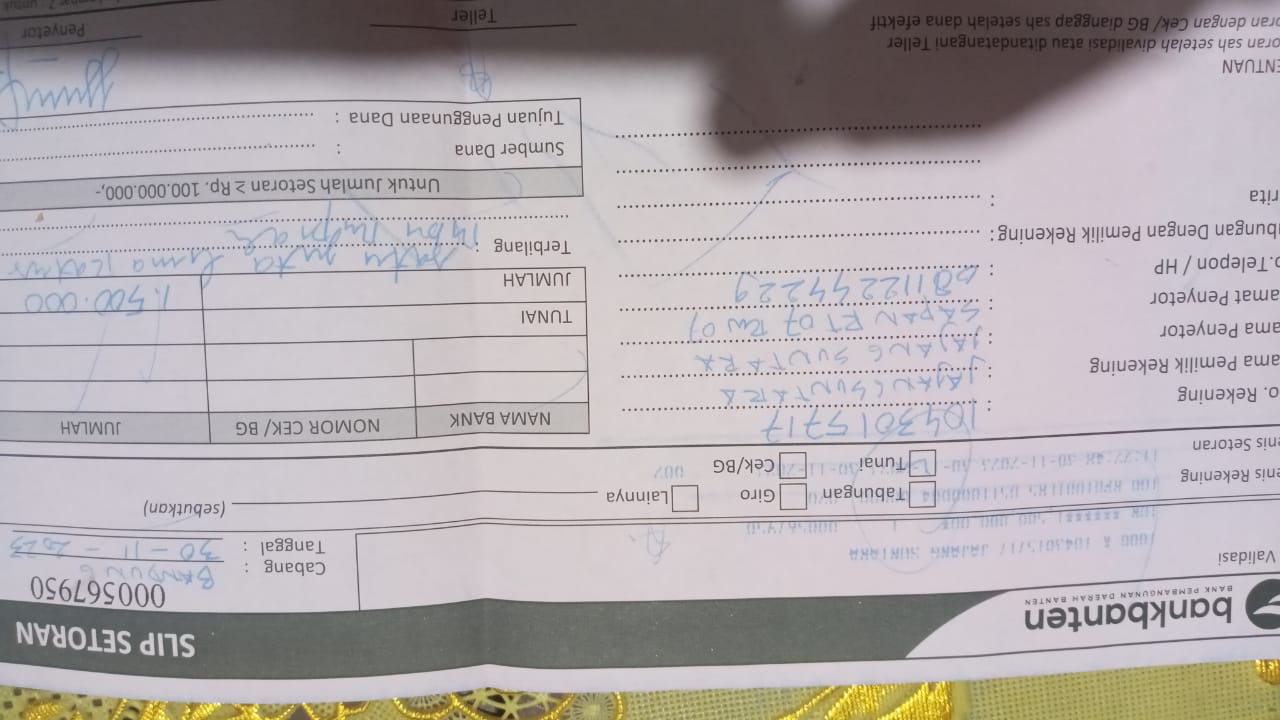 bankbanten
BANK PEMBANGUNAN DAERAH BANTEN
SLIP SETORAN
000567950
Validasi
Cabang : BANDUNG
Tanggal : 30 - 11 - 2023
JAJANG SUNTARA
(sebutkan)
enis Rekening
Tabungan Giro Lainnya
enis Setoran
Tunai Cek/BG
o. Rekening : 1043015717
ama Pemilik Rekening : JAJANG SUNTARA
ama Penyetor : JAJANG SUNTARA
amat Penyetor : SAPAN RT 07 RW 07
o.Telepon / HP : 08112244229
ubungan Dengan Pemilik Rekening :
rita :
NAMA BANK NOMOR CEK/ BG JUMLAH
TUNAI
JUMLAH 1.500.000
Terbilang : satu juta lima ratus
ribu rupiah
Untuk Jumlah Setoran ≥ Rp. 100.000.000,-
Sumber Dana :
Tujuan Penggunaan Dana :
ENTUAN
oran sah setelah divalidasi atau ditandatangani Teller
oran dengan Cek/ BG dianggap sah setelah dana efektif
Teller
Penyetor